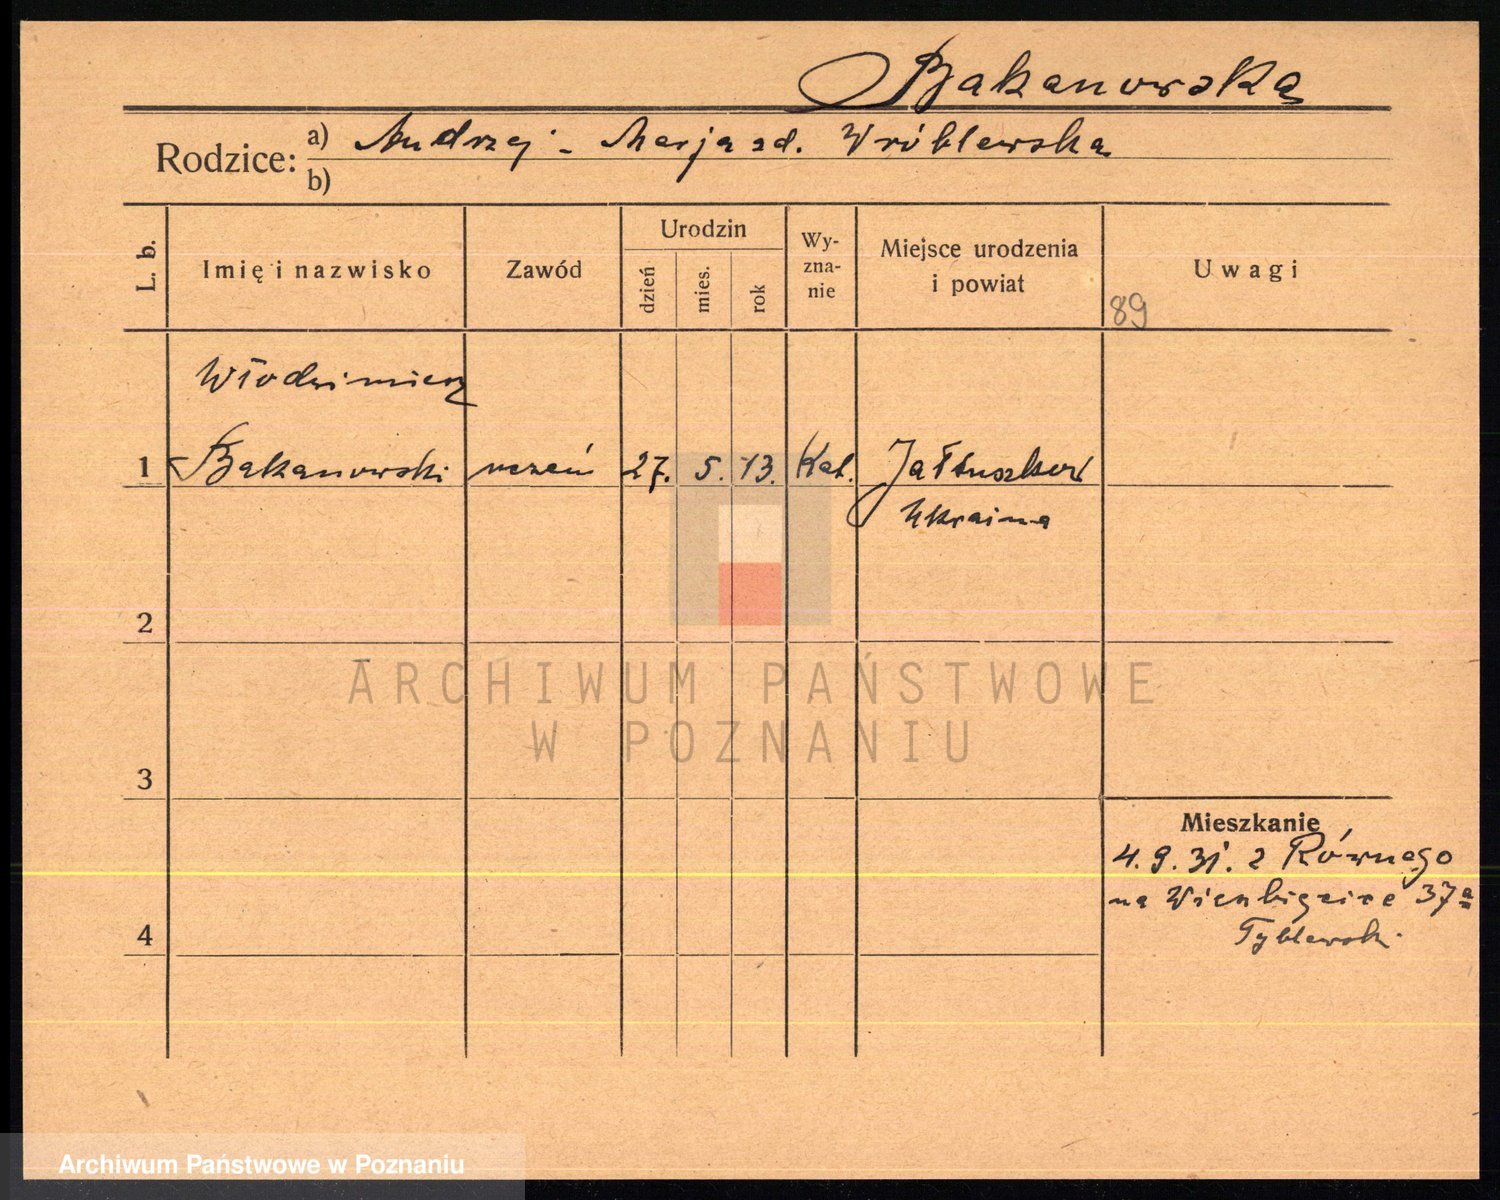 Bakanowska
Rodzice: a) Andrzej - Marja zd. Wróblewska
b)
L. b.
Imię i nazwisko
Zawód
Urodzin
dzień
mies.
rok
Wy-
zna-
nie
Miejsce urodzenia
i powiat
Uwagi
89
Włodzimierz
1 Bakanowski uczeń 27. 5. 13. Kat. Jałtuszków
Ukraina
2
3
Mieszkanie
4. 9. 31. z Równego
na 37a
4
Tyblewski
ARCHIWUM PAŃSTWOWE
W POZNANIU
Archiwum Państwowe w Poznaniu